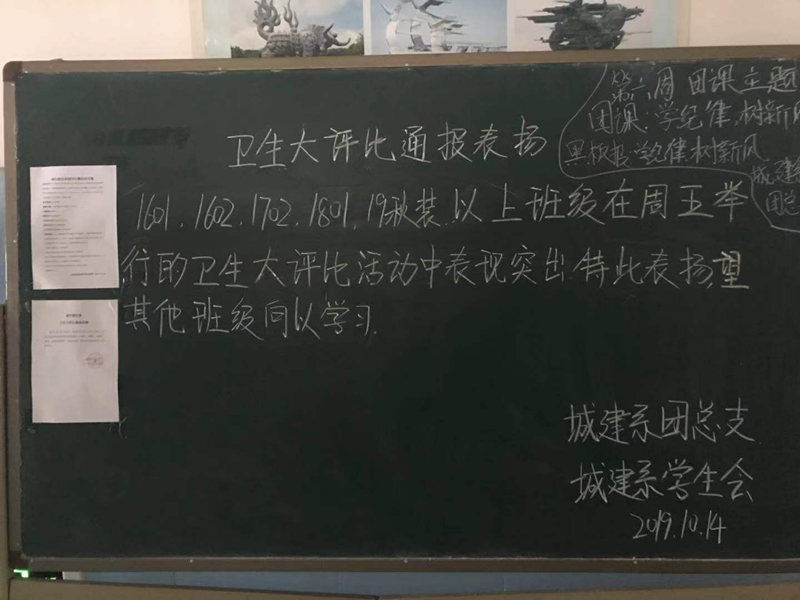 卫生大评比通报表扬
1601、1602、1702、1801、19秋装.以上班级在周五举
行的卫生大评比活动中表现突出.特此表扬,望
其他班级向以学习.
城建系团总支
城建系学生会
2019.10.14
第六周 团课主题
团课:学纪律.树新风
黑板报:学纪律树新风
城建
团总